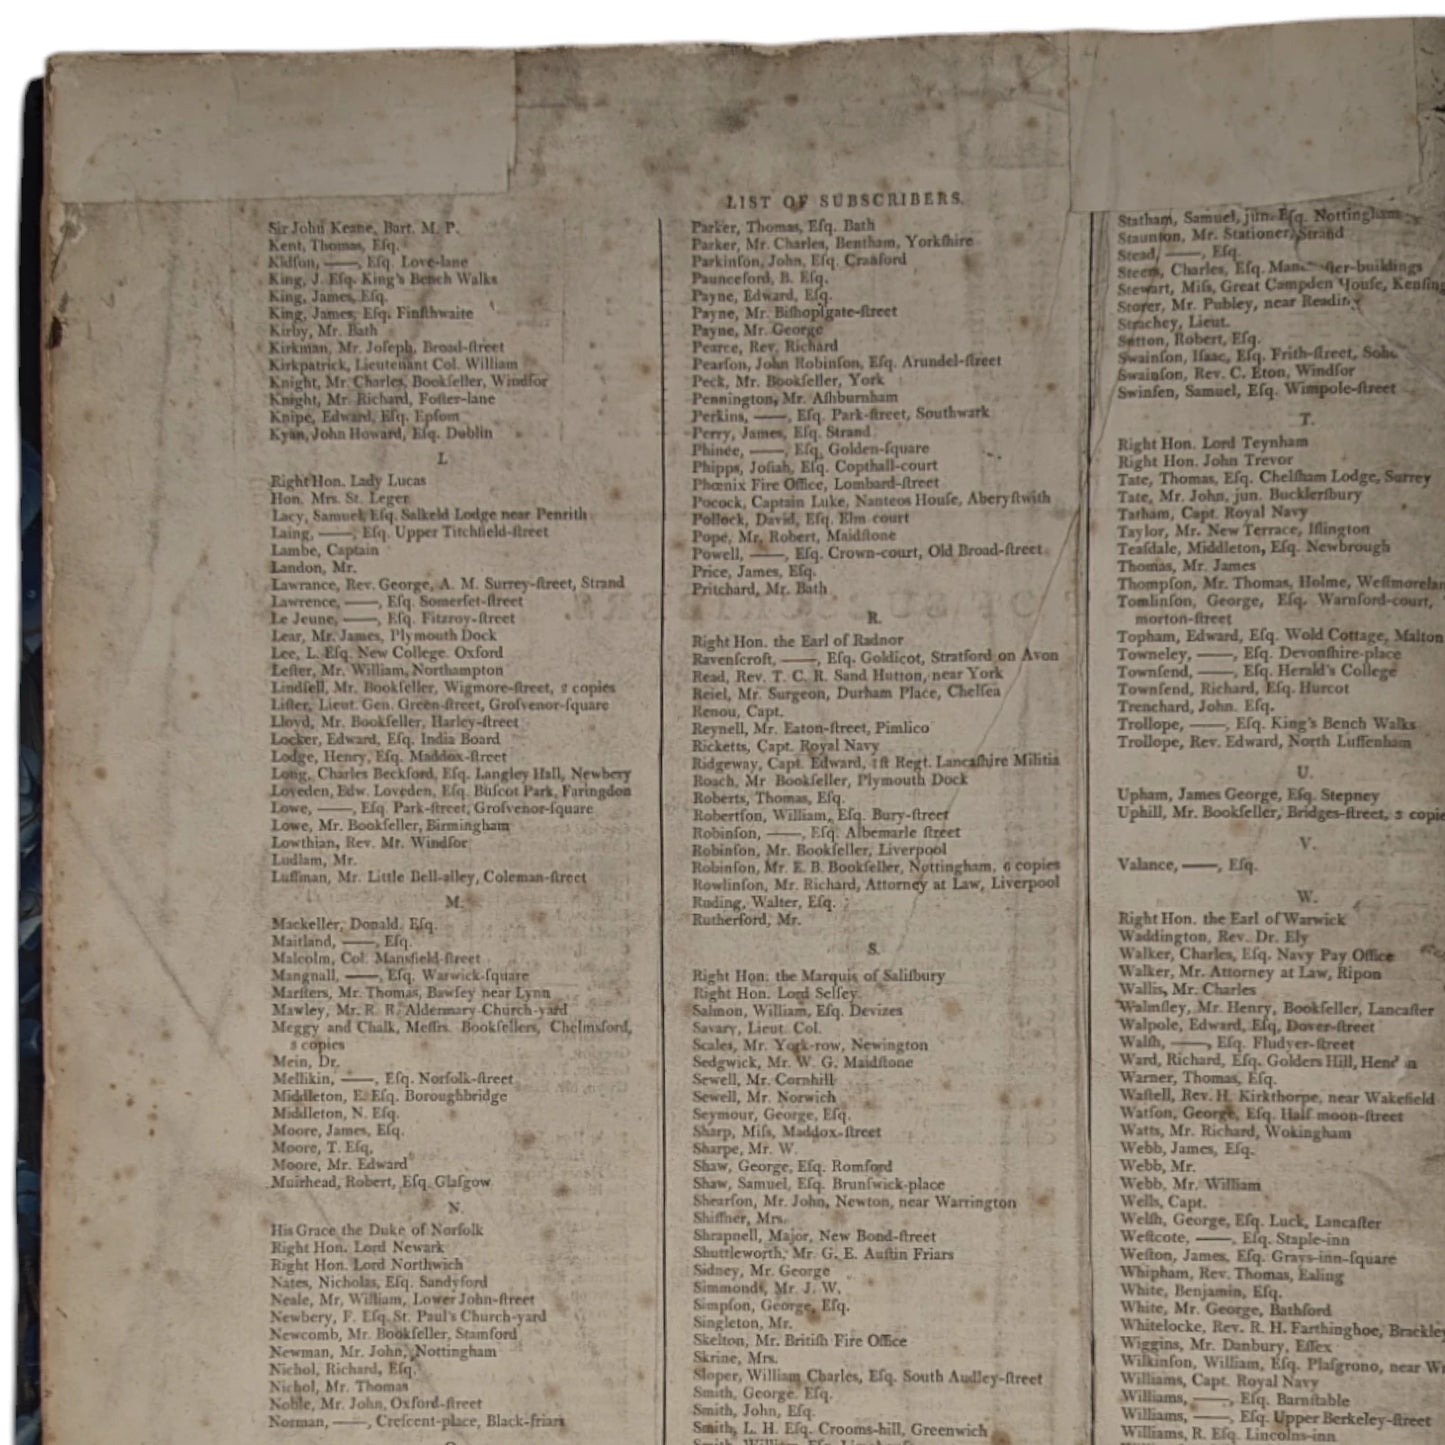 LIST OF SUBSCRIBERS.
Sir John Keane, Bart. M. P.
Kent, Thomas, Eſq.
Kidſon, ——, Eſq. Love-lane
King, J. Eſq. King's Bench Walks
King, James, Eſq.
King, James, Eſq. Finſthwaite
Kirby, Mr. Bath
Kirkman, Mr. Joſeph, Broad-ſtreet
Kirkpatrick, Lieutenant Col. William
Knight, Mr. Charles, Bookſeller, Windſor
Knight, Mr. Richard, Foſter-lane
Knipe, Edward, Eſq. Epſom
Kyan, John Howard, Eſq. Dublin
L
Right Hon. Lady Lucas
Hon. Mrs. St. Leger
Lacy, Samuel, Eſq. Salkeld Lodge near Penrith
Laing, ——, Eſq. Upper Titchfield-ſtreet
Lambe, Captain
Landon, Mr.
Lawrance, Rev. George, A. M. Surrey-ſtreet, Strand
Lawrence, ——, Eſq. Somerſet-ſtreet
Le Jeune, ——, Eſq. Fitzroy-ſtreet
Lear, Mr. James, Plymouth Dock
Lee, L. Eſq. New College. Oxford
Leſter, Mr. William, Northampton
Lindſell, Mr. Bookſeller, Wigmore-ſtreet, 2 copies
Liſter, Lieut. Gen. Green-ſtreet, Groſvenor-ſquare
Lloyd, Mr. Bookſeller, Harley-ſtreet
Locker, Edward, Eſq. India Board
Lodge, Henry, Eſq. Maddox-ſtreet
Long, Charles Beckford, Eſq. Langley Hall, Newbery
Loveden, Edw. Loveden, Eſq. Buſcot Park, Faringdon
Lowe, ——, Eſq. Park-ſtreet, Groſvenor-ſquare
Lowe, Mr. Bookſeller, Birmingham
Lowthian, Rev. Mr. Windſor
Ludlam, Mr.
Luffman, Mr. Little Bell-alley, Coleman-ſtreet
M.
Mackeller, Donald, Eſq.
Maitland, ——, Eſq.
Malcolm, Col. Mansfield-ſtreet
Mangnall, ——, Eſq. Warwick-ſquare
Marſters, Mr. Thomas, Bawſey near Lynn
Mawley, Mr. R. R. Aldermary Church-yard
Meggy and Chalk, Meſſrs. Bookſellers, Chelmsford,
copies
Mein, Dr.
Mellikin, ——, Eſq. Norfolk-ſtreet
Middleton, E. Eſq. Boroughbridge
Middleton, N. Eſq.
Moore, James, Eſq.
Moore, T. Eſq.
Moore, Mr. Edward
Muirhead, Robert, Eſq. Glaſgow
N.
His Grace the Duke of Norfolk
Right Hon. Lord Newark
Right Hon. Lord Northwich
Nates, Nicholas, Eſq. Sandyford
Neale, Mr. William, Lower John-ſtreet
Newbery, F. Eſq. St. Paul's Church-yard
Newcomb, Mr. Bookſeller, Stamford
Newman, Mr. John, Nottingham
Nichol, Richard, Eſq.
Nichol, Mr. Thomas
Noble, Mr. John, Oxford-ſtreet
Norman, ——, Creſcent-place, Black-friars
Parker, Thomas, Eſq. Bath
Parker, Mr. Charles, Bentham, Yorkſhire
Parkinſon, John, Eſq. Cranford
Paunceford, B. Eſq.
Payne, Edward, Eſq.
Payne, Mr. Biſhopſgate-ſtreet
Payne, Mr. George
Pearce, Rev. Richard
Pearſon, John Robinſon, Eſq. Arundel-ſtreet
Peck, Mr. Bookſeller, York
Pennington, Mr. Aſhburnham
Perkins, ——, Eſq. Park-ſtreet, Southwark
Perry, James, Eſq. Strand
Phinee, ——, Eſq. Golden-ſquare
Phipps, Joſiah, Eſq. Copthall-court
Phœnix Fire Office, Lombard-ſtreet
Pocock, Captain Luke, Nanteos Houſe, Aberyſtwith
Pollock, David, Eſq. Elm court
Pope, Mr. Robert, Maidſtone
Powell, ——, Eſq. Crown-court, Old Broad-ſtreet
Price, James, Eſq.
Pritchard, Mr. Bath
R.
Right Hon. the Earl of Radnor
Ravenſcroft, ——, Eſq. Goldicot, Stratford on Avon
Read, Rev. T. C. R. Sand Hutton, near York
Reiel, Mr. Surgeon, Durham Place, Chelſea
Renou, Capt.
Reynell, Mr. Eaton-ſtreet, Pimlico
Ricketts, Capt. Royal Navy
Ridgeway, Capt. Edward, 1ſt Regt. Lancaſhire Militia
Roach, Mr Bookſeller, Plymouth Dock
Roberts, Thomas, Eſq.
Robertſon, William, Eſq. Bury-ſtreet
Robinſon, ——, Eſq. Albemarle ſtreet
Robinſon, Mr. Bookſeller, Liverpool
Robinſon, Mr. E. B. Bookſeller, Nottingham, 6 copies
Rowlinſon, Mr. Richard, Attorney at Law, Liverpool
Ruding, Walter, Eſq.
Rutherford, Mr.
S.
Right Hon. the Marquis of Saliſbury
Right Hon. Lord Selſey.
Salmon, William, Eſq. Devizes
Savary, Lieut. Col.
Scales, Mr. York-row, Newington
Sedgwick, Mr. W. G. Maidſtone
Sewell, Mr. Cornhill
Sewell, Mr. Norwich
Seymour, George, Eſq.
Sharp, Miſs, Maddox-ſtreet
Sharpe, Mr. W.
Shaw, George, Eſq. Romford
Shaw, Samuel, Eſq. Brunſwick-place
Shearſon, Mr. John, Newton, near Warrington
Shiffner, Mrs.
Shrapnell, Major, New Bond-ſtreet
Shuttleworth, Mr. G. E. Auſtin Friars
Sidney, Mr. George
Simmonds, Mr. J. W.
Simpſon, George, Eſq.
Singleton, Mr.
Skelton, Mr. Britiſh Fire Office
Skrine, Mrs.
Sloper, William Charles, Eſq. South Audley-ſtreet
Smith, George, Eſq.
Smith, John, Eſq.
Smith, L. H. Eſq. Crooms-hill, Greenwich
Statham, Samuel, jun. Eſq. Nottingham
Staunton, Mr. Stationer, Strand
Stead, ——, Eſq.
Steers, Charles, Eſq.
Stewart, Miſs, Great Campden Houſe, Kenſing
Storer, Mr. Publey, near Reading
Strachey, Lieut.
Sutton, Robert, Eſq.
Swainſon, Iſaac, Eſq. Frith-ſtreet, Soho
Swainſon, Rev. C. Eton, Windſor
Swinfen, Samuel, Eſq. Wimpole-ſtreet
T.
Right Hon. Lord Teynham
Right Hon. John Trevor
Tate, Thomas, Eſq. Chelſham Lodge, Surrey
Tate, Mr. John, jun. Bucklerſbury
Tatham, Capt. Royal Navy
Taylor, Mr. New Terrace, Iſlington
Teaſdale, Middleton, Eſq. Newbrough
Thomas, Mr. James
Thompſon, Mr. Thomas, Holme, Weſtmorelan
Tomlinſon, George, Eſq. Warnford-court,
morton-ſtreet
Topham, Edward, Eſq. Wold Cottage, Malton
Towneley, ——, Eſq. Devonſhire-place
Townſend, ——, Eſq. Herald's College
Townſend, Richard, Eſq. Hurcot
Trenchard, John. Eſq.
Trollope, ——, Eſq. King's Bench Walks
Trollope, Rev. Edward, North Luffenham
U.
Upham, James George, Eſq. Stepney
Uphill, Mr. Bookſeller, Bridges-ſtreet, 2 copie
V.
Valance, ——, Eſq.
W.
Right Hon. the Earl of Warwick
Waddington, Rev. Dr. Ely
Walker, Charles, Eſq. Navy Pay Office
Walker, Mr. Attorney at Law, Ripon
Wallis, Mr. Charles
Walmſley, Mr. Henry, Bookſeller, Lancaſter
Walpole, Edward, Eſq. Dover-ſtreet
Walſh, ——, Eſq. Fludyer-ſtreet
Ward, Richard, Eſq. Golders Hill, Hendon
Warner, Thomas, Eſq.
Waſtell, Rev. H. Kirkthorpe, near Wakefield
Watſon, George, Eſq. Half moon-ſtreet
Watts, Mr. Richard, Wokingham
Webb, James, Eſq.
Webb, Mr.
Webb, Mr. William
Wells, Capt.
Welſh, George, Eſq. Luck, Lancaſter
Weſtcote, ——, Eſq. Staple-inn
Weſton, James, Eſq. Grays-inn-ſquare
Whipham, Rev. Thomas, Ealing
White, Benjamin, Eſq.
White, Mr. George, Bathford
Whitelocke, Rev. R. H. Farthinghoe, Brackle
Wiggins, Mr. Danbury, Eſſex
Wilkinſon, William, Eſq. Plaſgrono, near W
Williams, Capt. Royal Navy
Williams, ——, Eſq. Barnſtable
Williams, ——, Eſq. Upper Berkeley-ſtreet
Williams, R. Eſq. Lincolns-inn